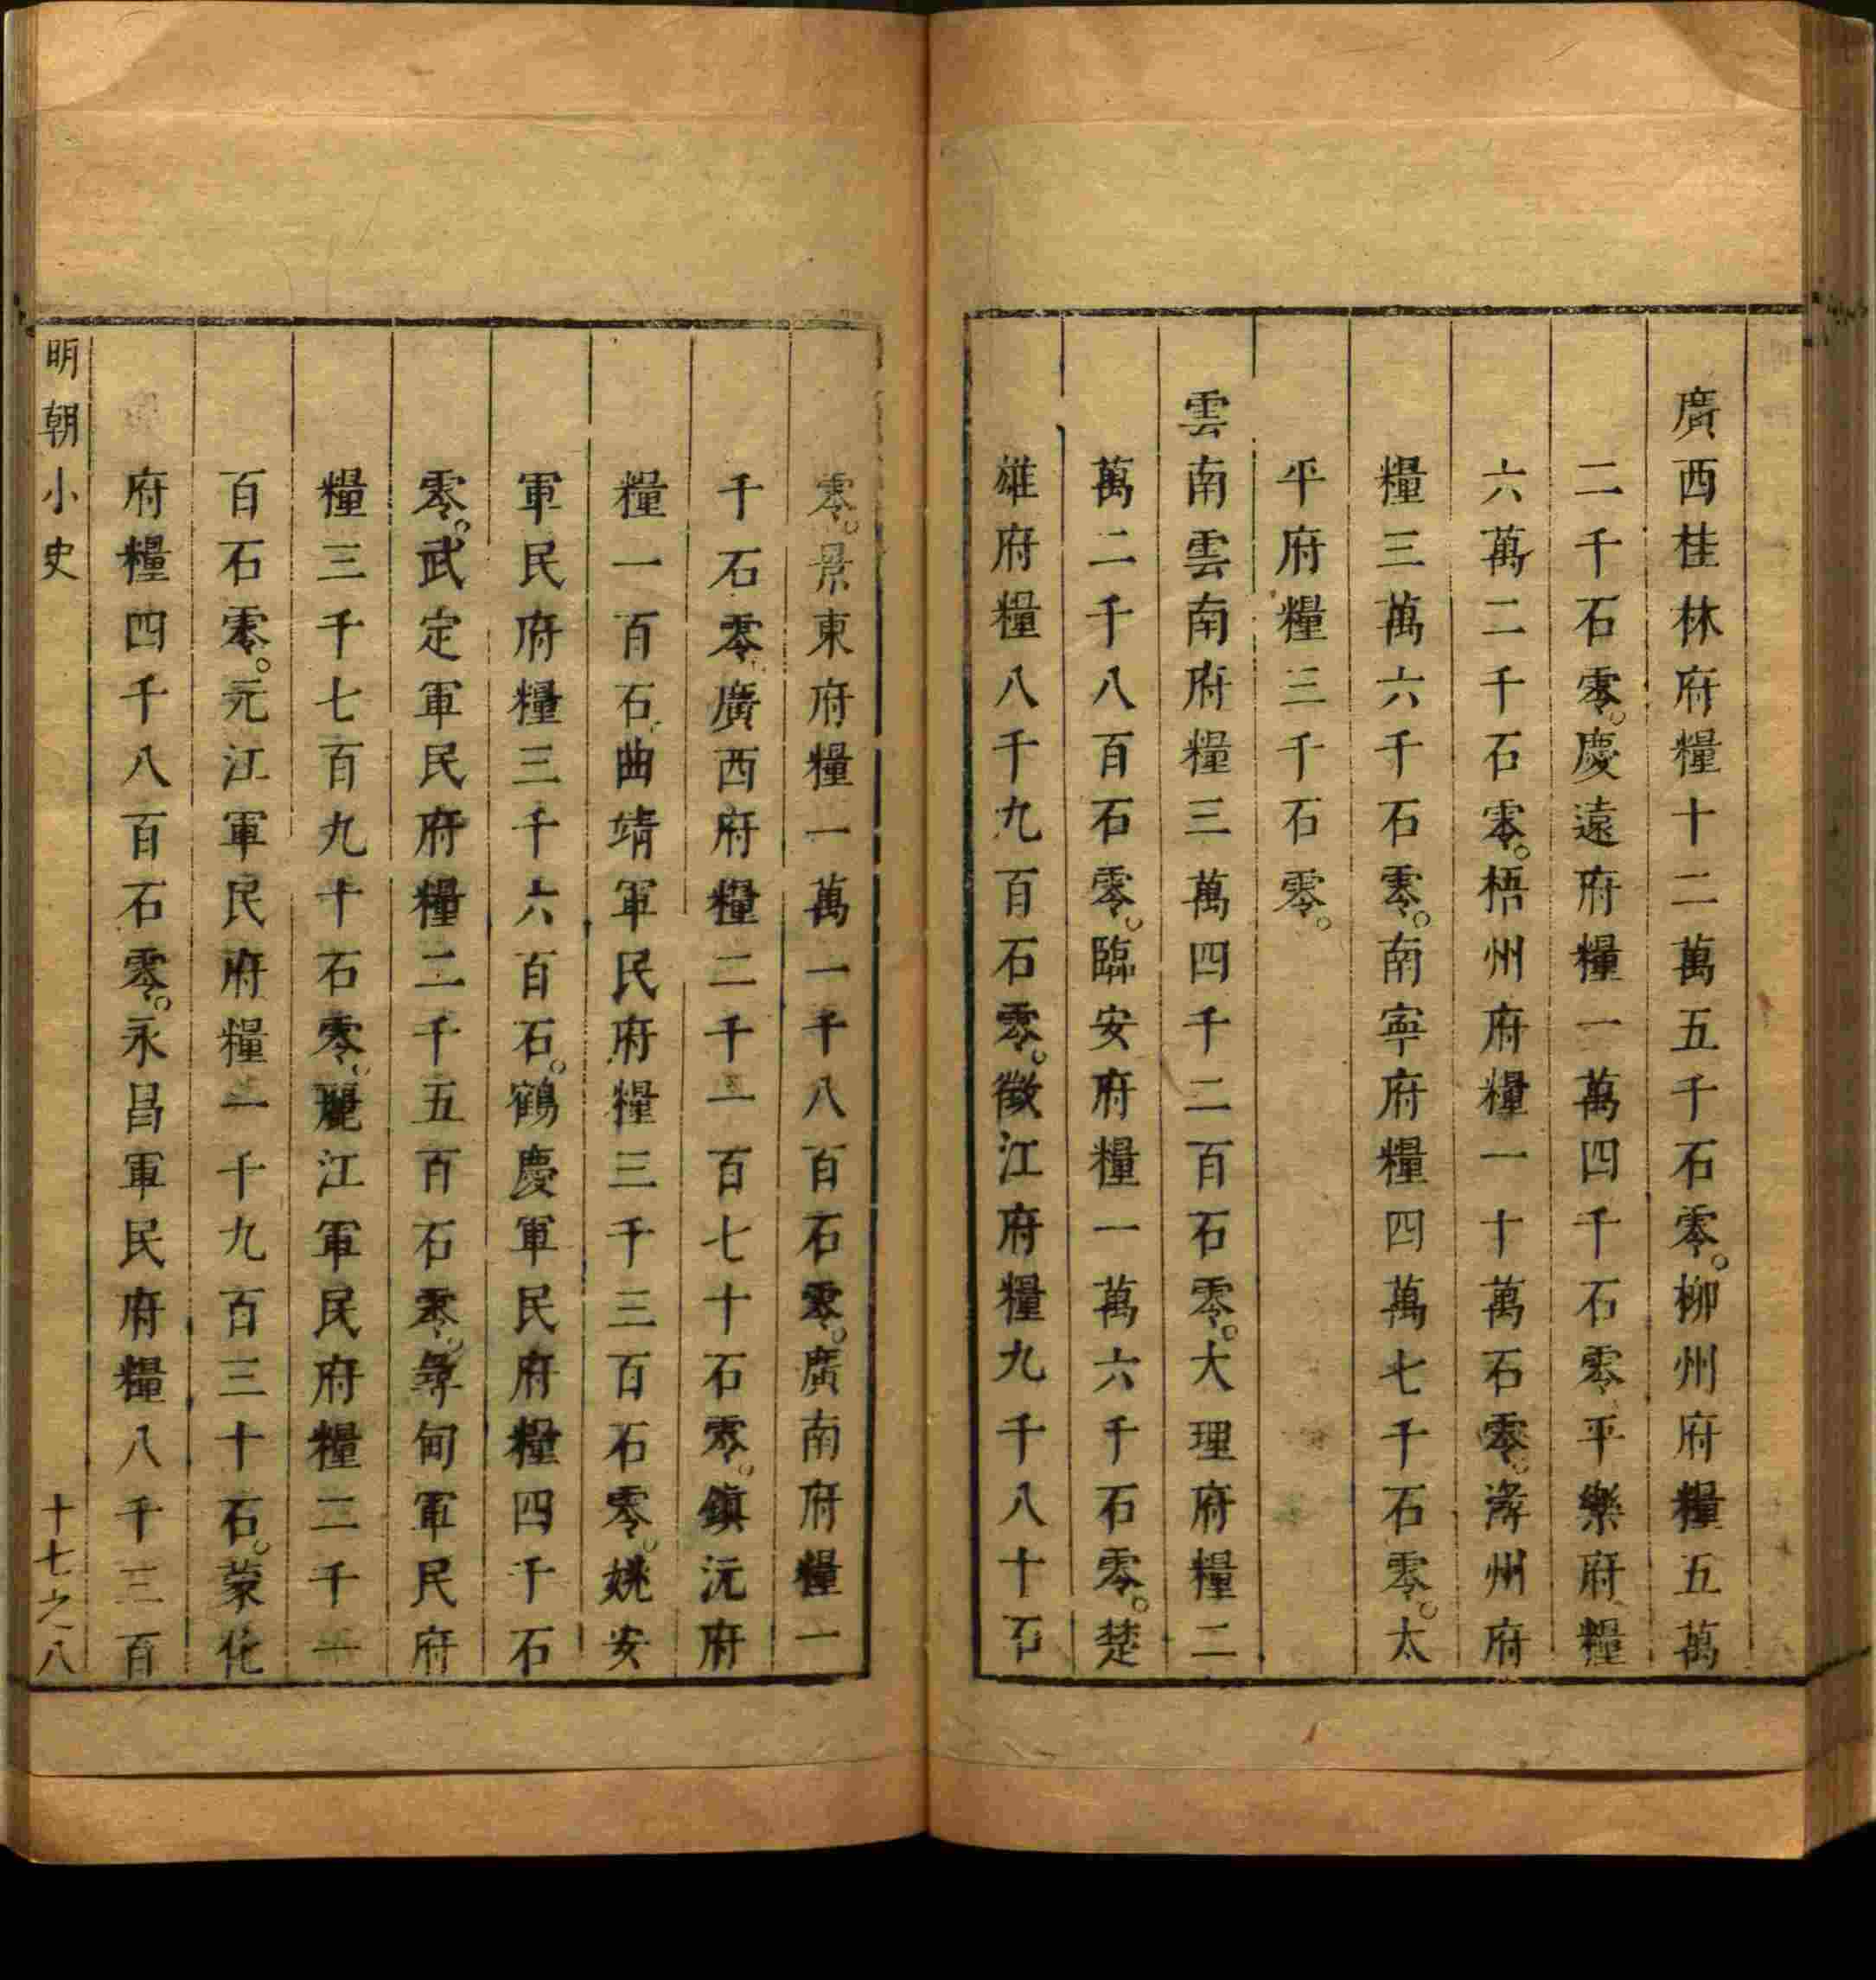 廣西桂林府糧十二萬五千石零。柳州府糧五萬
二千石零。慶遠府糧一萬四千石零平樂府糧
六萬二千石零。梧州府糧一十萬石零。潯州府
糧三萬六千石零。南寧府糧四萬七千石零。太
平府糧三千石零。
雲南雲南府糧三萬四千二百石零。大理府糧二
萬二千八百石零。臨安府糧一萬六千石零。楚
雄府糧八千九百石零。徵江府糧九千八十石
零。景東府糧一萬一千八百石零。廣南府糧一
千石零。廣西府糧二千一百七十石零。鎮沅府
糧一百石。曲靖軍民府糧三千三百石零。姚安
軍民府糧三千六百石。鶴慶軍民府糧四千石
零。武定軍民府糧二千五百石零。尋甸軍民府
糧三千七百九十石零。麗江軍民府糧二千一
百石零。元江軍民府糧一千九百三十石。蒙化
府糧四千八百石零。永昌軍民府糧八千三百
明朝小史
十七之八